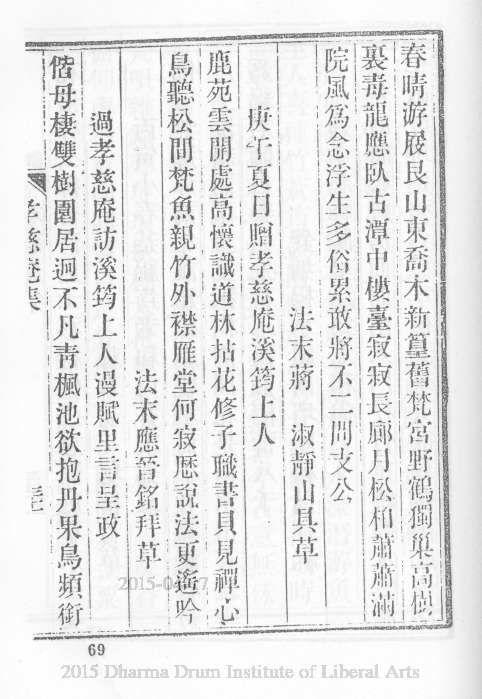 春晴游屐艮山東喬木新篁舊梵宮野鶴獨巢高樹
裏毒龍應臥古潭中樓臺寂寂長廊月松柏蕭蕭滿
院風爲念浮生多俗累敢將不二問支公
法末蔣淑靜山具草
庚午夏日贈孝慈庵溪筠上人
鹿苑雲開處高懷識道林拈花修子職書貝見禪心
鳥聽松間梵魚親竹外襟雁堂何寂歷說法更遙吟
法末應晉銘拜草
過孝慈庵訪溪筠上人漫賦里言呈政
偕母棲雙樹園居迥不凡靑楓池欲抱丹果鳥頻銜
孝慈庵集
69
2015 Dharma Drum Institute of Liberal Arts